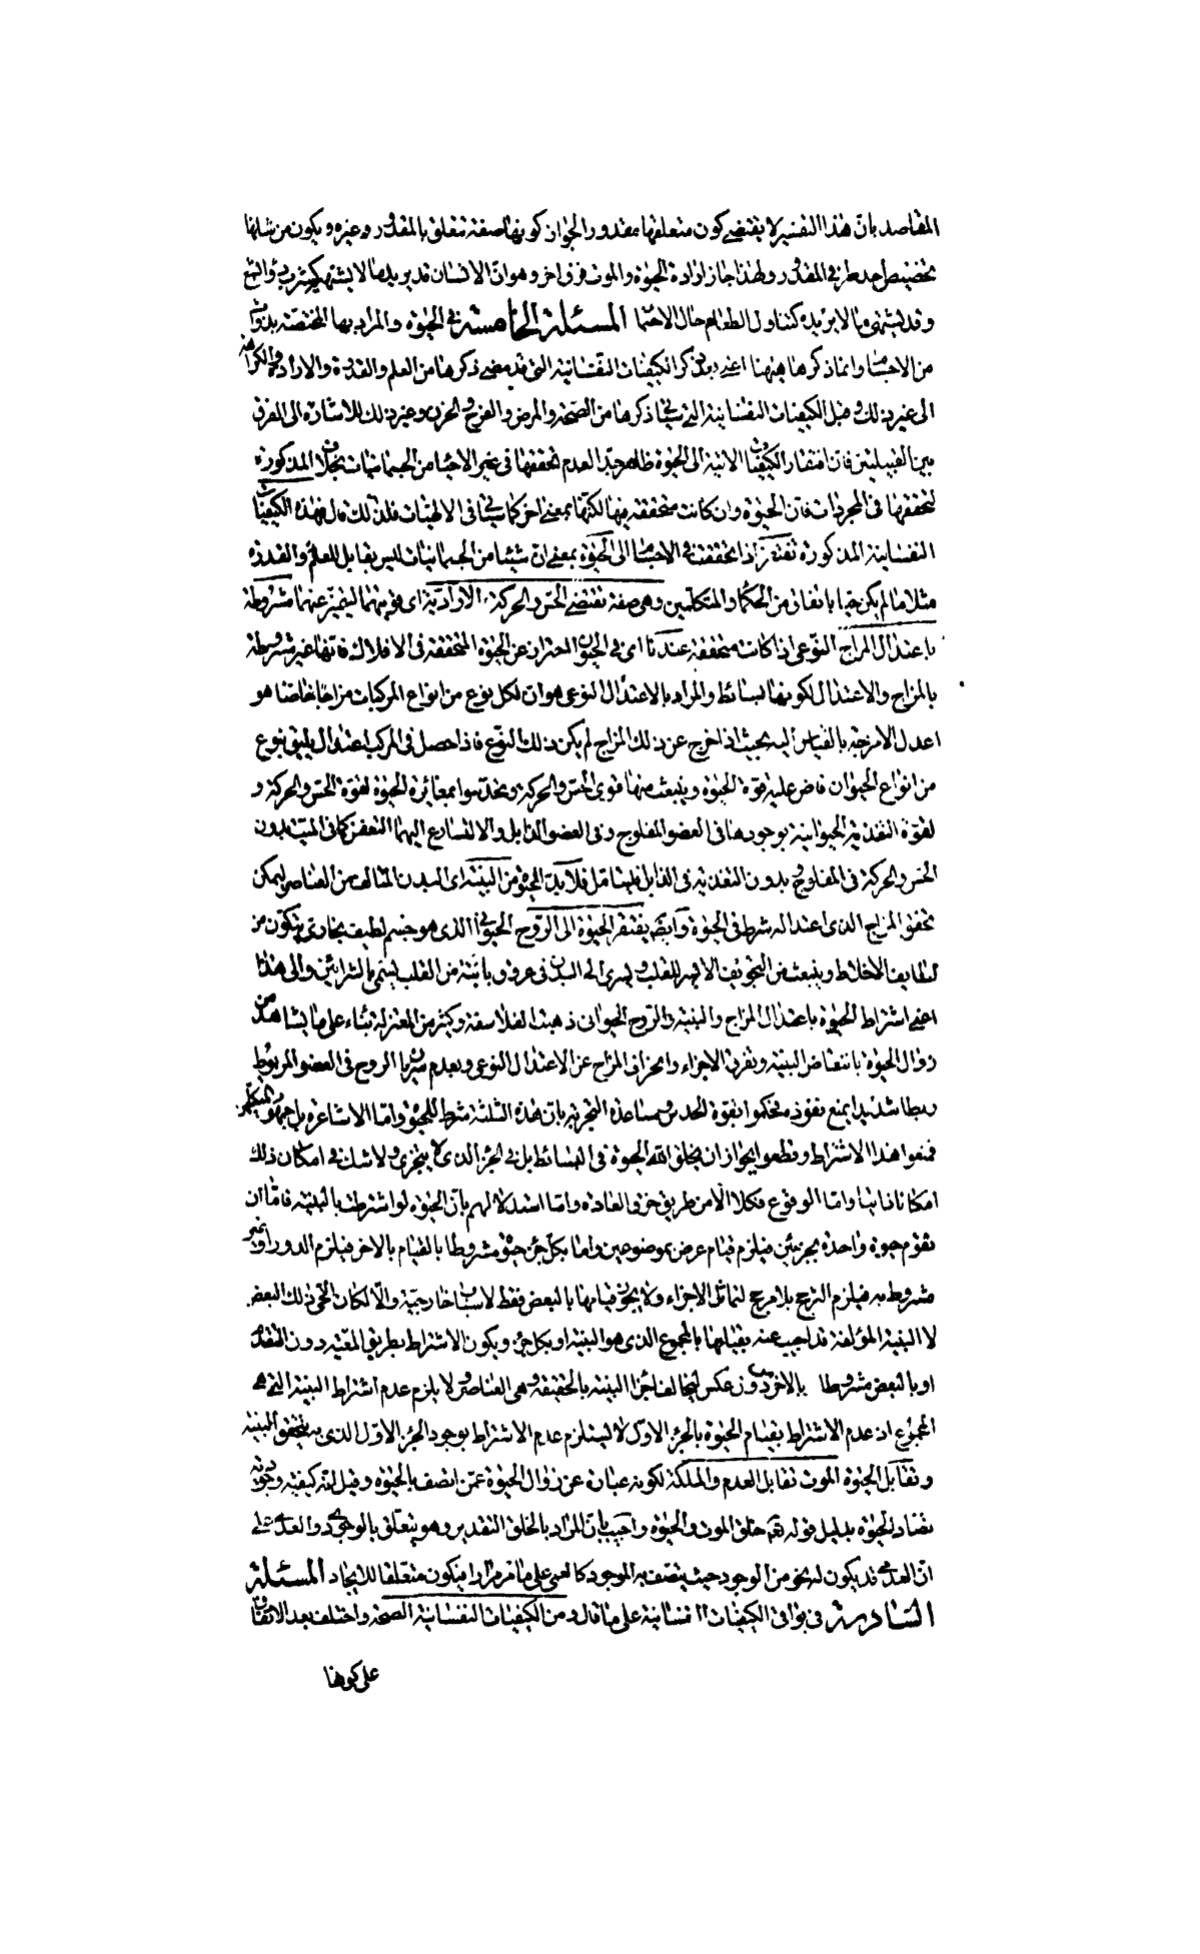 المقاصد بان هذا التفسير لا يقتضى كون متعلقها مقدورا لجواز كونها صفة تتعلق بالمقدور وغيره ويكون من شانها
تخصيص احد طرفى المقدور ولهذا جاز ارادة الحيوة والموت فرق اخر وهو ان الانسان قد يريد ما لا يشتهيه كشرب دواء البشع
وقد يشتهى ما لا يريده كتناول الطعام حال الاحتما المسئلة الخامسة فى الحيوة والمراد بها المختصة بذوات
من الاجسام وانما ذكرها ههنا اعنى بعد ذكر الكيفيات النفسانية التى قد مضى ذكرها من العلم والقدرة والارادة والكراهة
الى غير ذلك وقبل الكيفيات النفسانية التى سيجئ ذكرها من الصحة والمرض والفرح والحزن وغير ذلك للاشارة الى الفرق
بين القبيلتين فان افتقار الكيفيات الاتية الى الحيوة ظاهر جدا لعدم تحققها فى غير الاحياء من الجسمانيات بخلاف المذكورة
لتحققها فى المجردات فان الحيوة وان كانت متحققة فيها لكنها بمعنى اخر كما سيجئ فى الالهيات فلذلك قال فهذه الكيفيات
النفسانية المذكورة تفتقر اذا تحققت فى الاجسام الى الحيوة بمعنى ان شيئا من الجسمانيات ليس بقابل للعلم والقدرة
مثلا ما لم يكن حيا باتفاق من الحكما والمتكلمين وهى صفة تقتضى الحس والحركة الارادية اى قوتيهما ليتميز عنهما مشروطة
باعتدال المزاج النوعى اذا كانت متحققة عندنا اى فى الحيوان احترازا عن الحيوة المتحققة فى الافلاك فانها غير مشروطة
بالمزاج والاعتدال لكونها بسائط والمراد بالاعتدال النوعى هو ان لكل نوع من انواع المركبات مزاجا خاصا هو
اعدل الامزجة بالقياس اليه بحيث اذا خرج عن ذلك المزاج لم يكن ذلك النوع فاذا حصل فى المركب اعتدال يليق بنوع
من انواع الحيوان فاض عليه قوة الحيوة وينبعث منها قوى الحس والحركة وتحدسوا بمغائرة الحيوة لقوة الحس والحركة و
لقوة التغذية الحيوانية بوجودها فى العضو المفلوج وفى العضو الذابل والا لتسارع اليهما التعفن كما فى الميت بدون
الحس والحركة فى المفلوج بدون التغذية فى الذابل فليتامل فلا بد من البنية اى البدن المتالف من العناصر ليمكن
تحقق المزاج الذى اعتداله شرط فى الحيوة وايضا يفتقر الحيوة الى الروح الحيوانى الذى هو جسم لطيف بخارى يتكون من
لطايف الاخلاط وينبعث من التجويف الايسر للقلب ويسرى الى البدن فى عروق نابتة من القلب يسمى بالشرائين والى هذا
اعنى اشتراط الحيوة باعتدال المزاج والبنية والروح الحيوانى ذهبت الفلاسفة وكثير من المعتزلة بناء على ما يشاهد من
زوال الحيوة بانتقاض البنية وتفرق الاجزاء وانحراف المزاج عن الاعتدال النوعى وبعدم سريان الروح فى العضو المربوط
ربطا شديدا يمنع نفوذه فحكموا بقوة الحدس ومساعدة التجربة بان هذه الثلثة شرط للحيوة واما الاشاعرة بل جمهور المتكلمين
فمنعوا هذا الاشتراط وقطعوا بجواز ان يخلق الله الحيوة فى البسائط بل فى الجزء الذى لا يتجزى ولا شك فى امكان ذلك
امكانا ذاتيا واما الوقوع فكلا الا من طريق خرق العادة واما استدلالهم بان الحيوة لو اشترطت بالبنية فاما ان
تقوم حيوة واحدة بجزئين فيلزم قيام عرض بموضوعين واما بكل جزء حيوة مشروطا بالقيام بالاخر فيلزم الدور او غير
مشروط به فيلزم الترجيح بلا مرجح لتماثل الاجزاء ولا يجوز قيامها بالبعض فقط لاسباب خارجية والا لكان الحى ذلك البعض
لا البنية المؤلفة فقد اجيب عنه بقيامها بالمجموع الذى هو البنية او بكل جزء ويكون الاشتراط بطريق المعية دون التقدم
او بالبعض مشروطا بالاخر دون عكس لتخالف اجزاء البنية بالحقيقة وهى العناصر ولا يلزم عدم اشتراط البنية التى هى
المجموع اذ عدم الاشتراط بقيام الحيوة بالجزء الاول لا يستلزم عدم الاشتراط بوجود الجزء الاول الذى به يتحقق البنية
وتقابل الحيوة الموت تقابل العدم والملكة لكونه عبارة عن زوال الحيوة عمن اتصف بالحيوة وقيل انه كيفية وجودية
تضاد الحيوة بدليل قوله تع خلق الموت والحيوة واجيب بان المراد بالخلق التقدير وهو يتعلق بالوجودى والعدمى على
ان العدمى قد يكون له نحو من الوجود حيث يتصف به الموجود كالعمى على ما مر مرارا فيكون متعلقا للايجاد المسئلة
السادسة فى بواقى الكيفيات النفسانية على ما قال ومن الكيفيات النفسانية الصحة واختلف بعد الاتفاق
على كونها